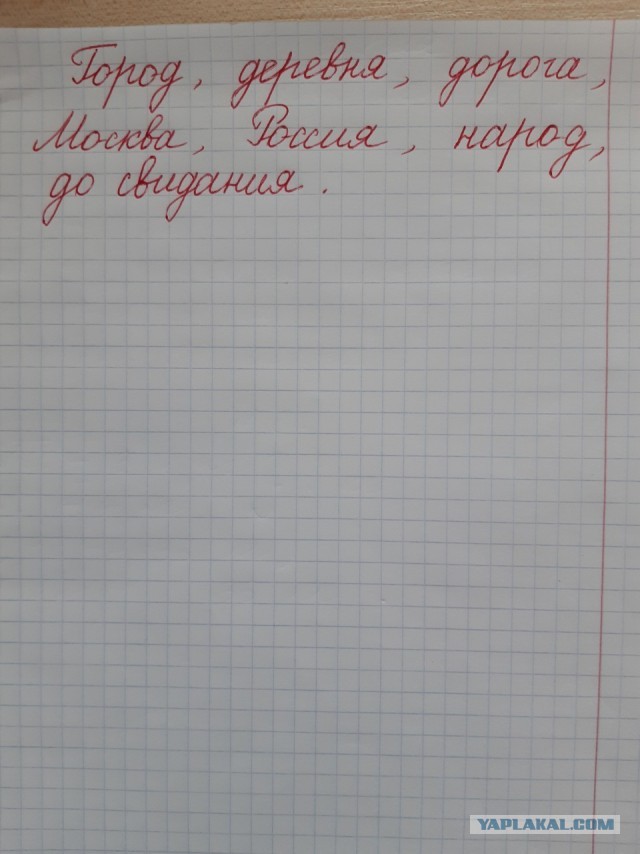 Город, деревня, дорога,
Москва, Россия, народ,
до свидания.
YAPLAKAL.COM